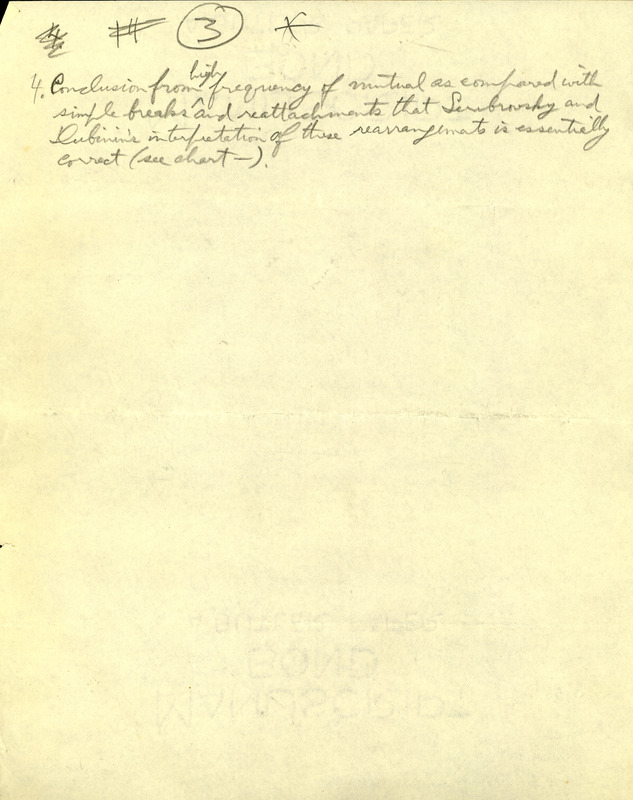 3
4. Conclusion from high frequency of mutual as compared with
simple breaks and reattachments that Serebrovsky and
Dubinin's interpretation of these rearrangements is essentially
correct (see chart —).
A BETTER PAPER
BOND
MANUSCRIPT